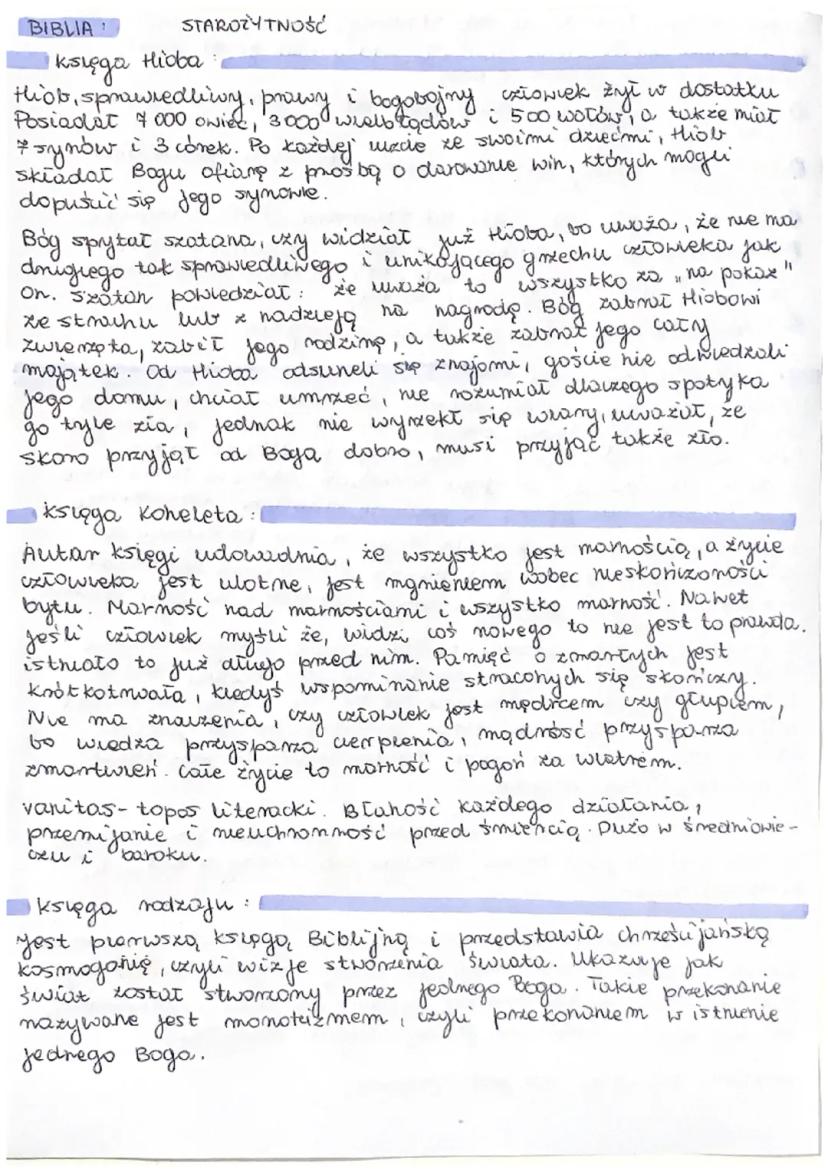 BIBLIA: STAROŻYTNOŚĆ
księga Hioba:
Hiob, sprawiedliwy, prawy i bogobojny człowiek żył w dostatku
Posiadał 7 000 owiec, 3 000 wielbłądów i 500 wołów, a także miał
7 synów i 3 córek. Po każdej uczcie ze swoimi dziećmi, Hiob
składał Bogu ofiarę z prośbą o darowanie win, których mogli
dopuścić się jego synowie.
Bóg spytał szatana, czy widział już Hioba, bo uważa, że nie ma
drugiego tak sprawiedliwego i unikającego grzechu człowieka jak
On. Szatan powiedział: że uważa to wszystko za „na pokaz"
ze strachu lub z nadzieją na nagrodę. Bóg zabrał Hiobowi
zwierzęta, zabił jego rodzinę, a także zabrał jego cały
majątek. Od Hioba odsuneli się znajomi, goście nie odwiedzali
jego domu, chciał umrzeć, nie rozumiał dlaczego spotyka
go tyle zła, jednak nie wyrzekł się wiary, uważał, że
skoro przyjął od Boga dobro, musi przyjąć także zło.
księga Koheleta:
Autor księgi udowadnia, że wszystko jest marnością, a życie
człowieka jest ulotne, jest mgnieniem wobec nieskończoności
bytu. Marność nad marnościami i wszystko marność. Nawet
jeśli człowiek myśli że, widzi coś nowego to nie jest to prawda.
istniało to już długo przed nim. Pamięć o zmarłych jest
krótkotrwała, kiedyś wspominanie straconych się skończy.
Nie ma znaczenia, czy człowiek jest mędrcem czy głupcem,
bo wiedza przysparza cierpienia, mądrość przysparza
zmartwień. Całe życie to marność i pogoń za wiatrem.
vanitas- topos literacki. Błahość każdego działania,
przemijanie i nieuchronność przed śmiercią. Dużo w średniowie-
czu i baroku.
księga rodzaju:
Jest pierwszą księgą Biblijną i przedstawia chrześcijańską
kosmogonię, czyli wizje stworzenia świata. Ukazuje jak
świat został stworzony przez jednego Boga. Takie przekonanie
nazywane jest monoteizmem, czyli przekonaniem w istnienie
jednego Boga.